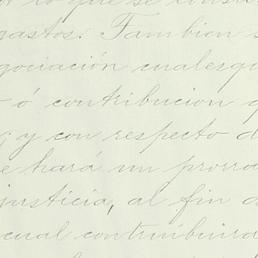 lo que se
gastos. Tambien s
gociación cualesqu
ó contribucion q
; y con respecto d
e hará un prorra
justicia, al fin d
cual contribuirá